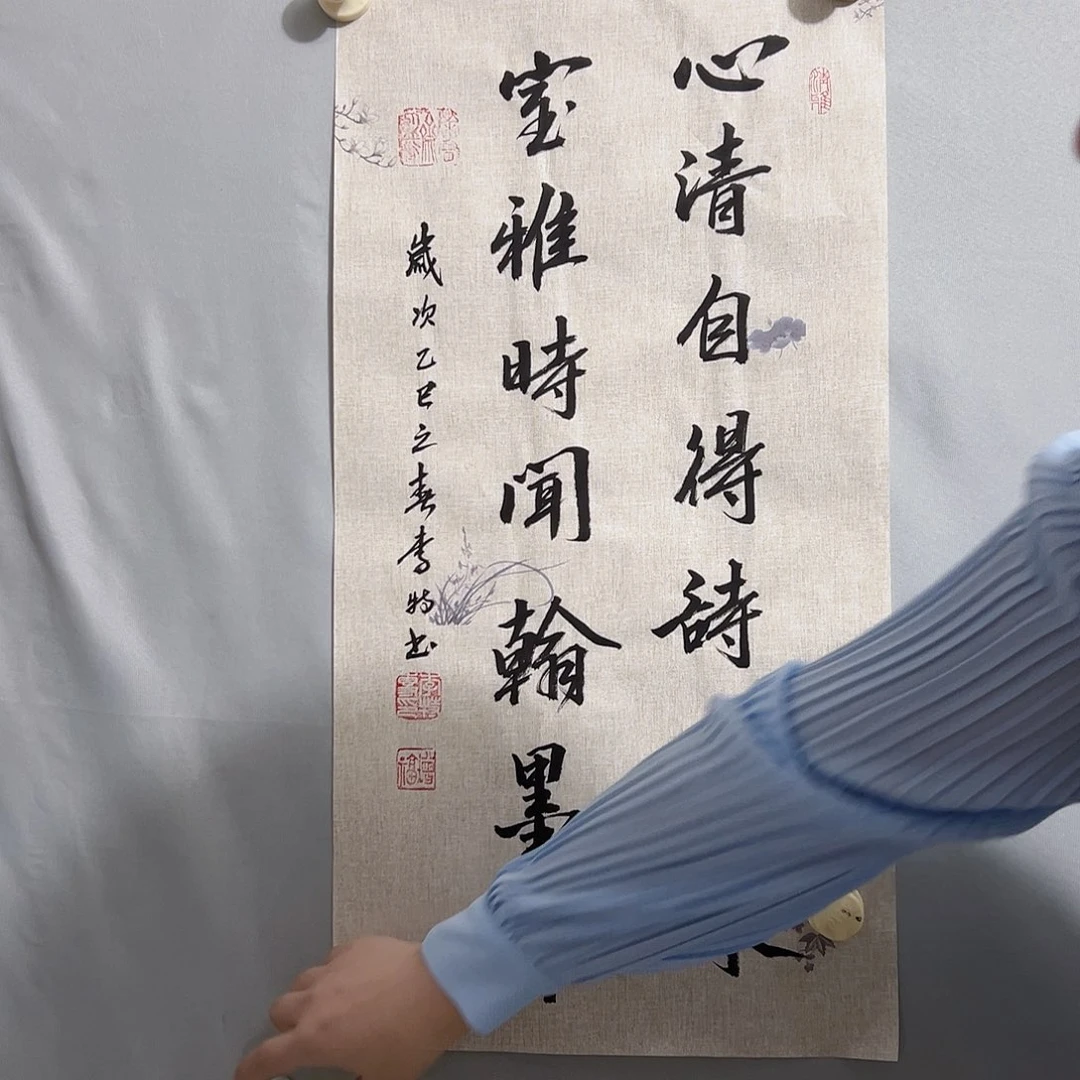 心清自得詩
室雅時聞翰墨
歲次乙巳之春李特书